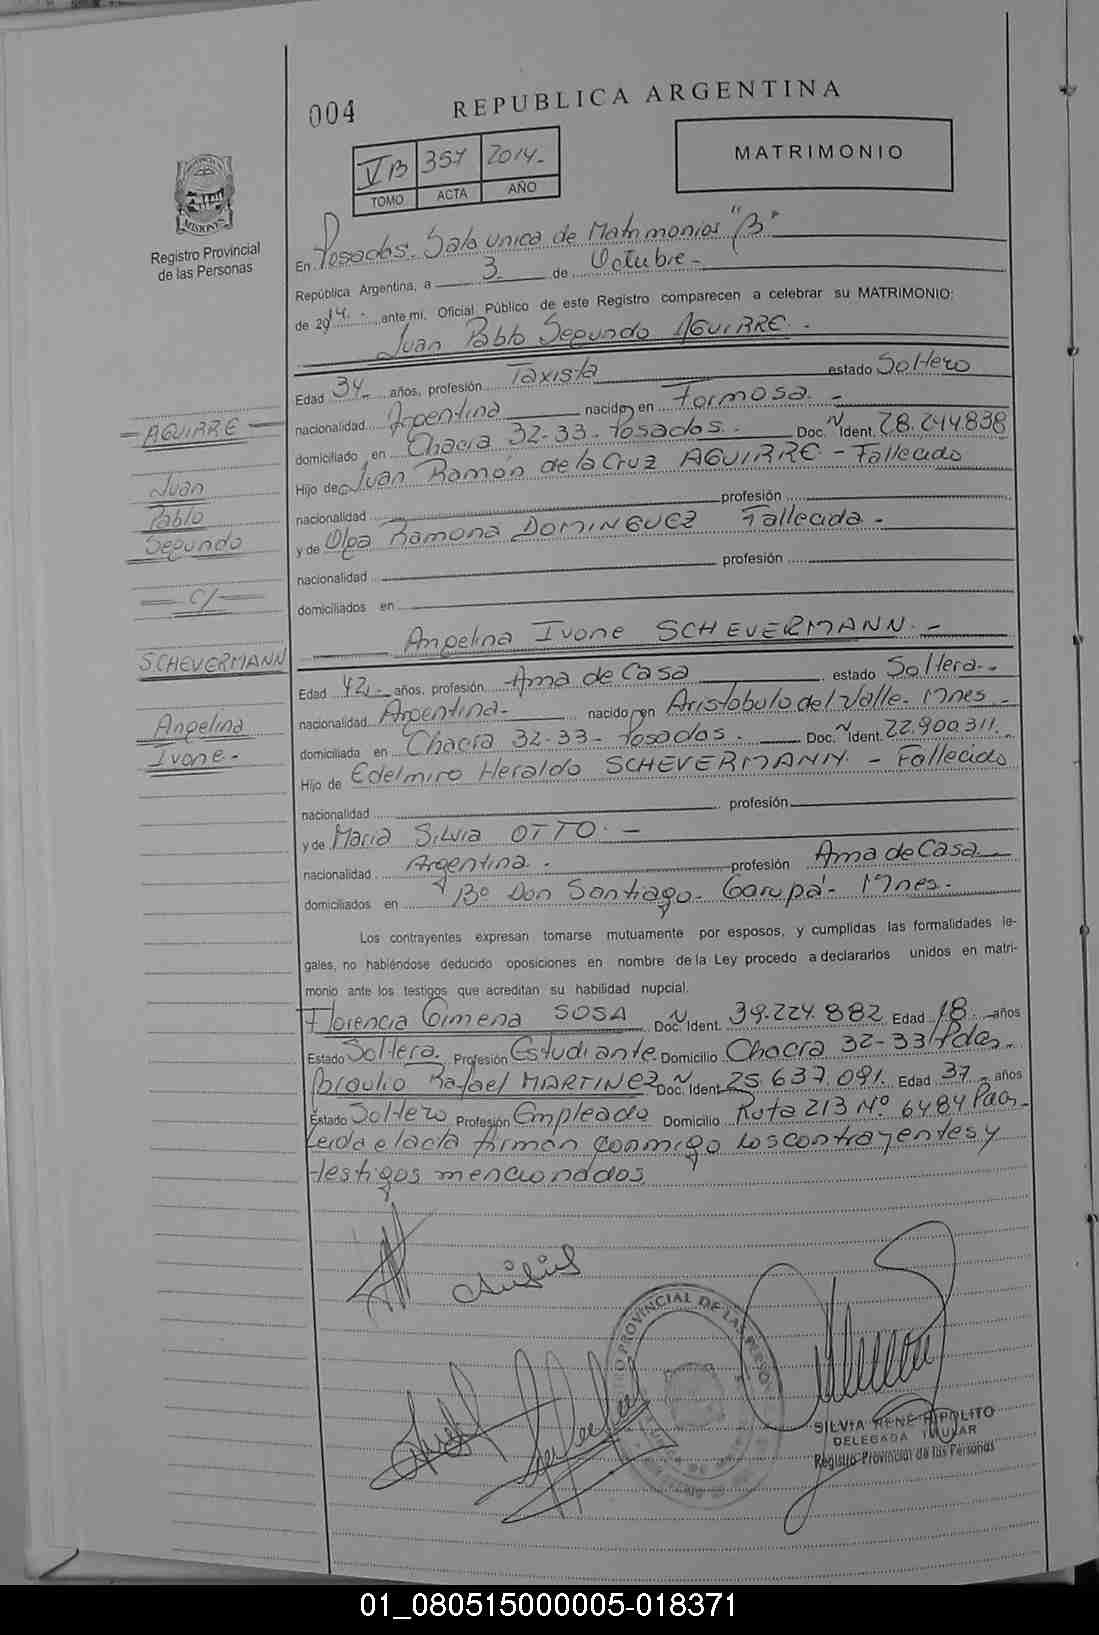 004
REPUBLICA ARGENTINA
MATRIMONIO
VB 357 2014.-
TOMO ACTA AÑO
MISIONES
Registro Provincial
de las Personas
En Posadas. Sala unica de Matrimonios "B"
República Argentina, a 3 de Octubre.-
de 2014.- ante mi, Oficial Público de este Registro comparecen a celebrar su MATRIMONIO:
Juan Pablo Segundo AGUIRRE.-
Edad 34.- años, profesión Taxista estado Soltero
nacionalidad Argentina nacido en Formosa.-
domiciliado en Chacra 32-33-Posadas.- Doc. Ident. 28.244.838
Hijo de Juan Ramón de la Cruz AGUIRRE - Fallecido
nacionalidad profesión
y de Olga Ramona DOMINGUEZ Fallecida.-
nacionalidad profesión
domiciliados en
Angelina Ivone SCHEVERMANN.-
Edad 42.- años, profesión Ama de Casa estado Soltera.-
nacionalidad Argentina.- nacido en Aristobulo del Valle-Mnes.-
domiciliada en Chacra 32-33-Posadas.- Doc. Ident. 22.900.311.
Hijo de Edelmiro Heraldo SCHEVERMANN.- Fallecido
nacionalidad profesión
y de Maria Silvia OTTO.-
nacionalidad Argentina.- profesión Ama de Casa
domiciliados en Bº Don Santiago-Garupá-Mnes.-
Los contrayentes expresan tomarse mutuamente por esposos, y cumplidas las formalidades le-
gales, no habiéndose deducido oposiciones en nombre de la Ley procedo a declararlos unidos en matri-
monio ante los testigos que acreditan su habilidad nupcial.
Florencia Gimena SOSA Doc. Ident. 39.224.882 Edad 18.- años
Estado Soltera. Profesión Estudiante Domicilio Chacra 32-33 Pdas.-
Braulio Rafael MARTINEZ Doc. Ident. 25.637.091. Edad 37.- años
Estado Soltero Profesión Empleado Domicilio Ruta 213 Nº 6484 Pdas.-
Leida el acta firman conmigo los contrayentes y
testigos mencionados
AGUIRRE
Juan
Pablo
Segundo
- c/ -
SCHEVERMANN
Angelina
Ivone.-
REGISTRO PROVINCIAL DE LAS PERSONAS
SILVIA RENE HIPOLITO
DELEGADA TITULAR
Registro Provincial de las Personas
01_080515000005-018371